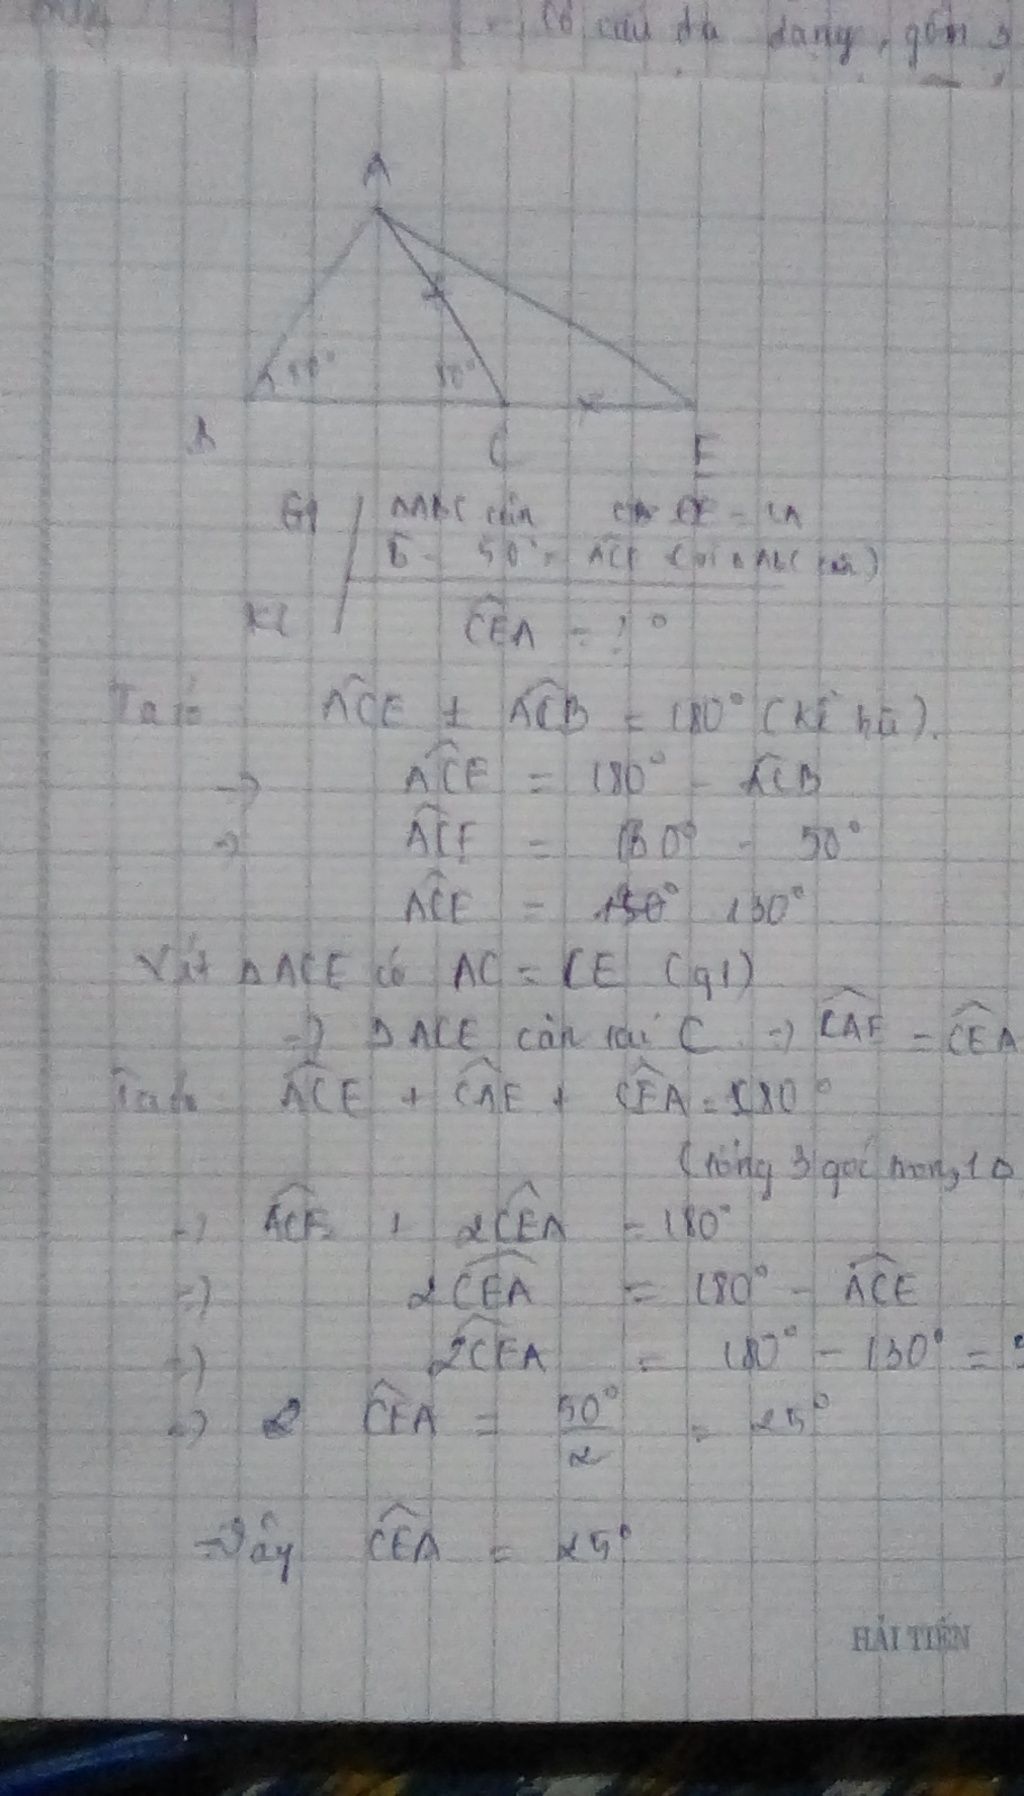 Cơ cấu đa dạng, gồm 3
A
50°
50°
B
C
E
GT ΔABC cân CE = CA
B = 50° = ACE (vì ΔABC cân)
KL CEA = ? °
Ta có ACE + ACB = 180° (kề bù).
=> ACE = 180° - ACB
=> ACE = 180° - 50°
ACE = 130°
Xét ΔACE có AC = CE (gt)
=> ΔACE cân tại C => CAE = CEA
Ta có ACE + CAE + CEA = 180°
(tổng 3 góc trong 1 Δ
=> ACE + 2CEA = 180°
=> 2CEA = 180° - ACE
=> 2CEA = 180° - 130° =
=> CEA = 50°/2 = 25°
=> Vậy CEA = 25°
HẢI TIẾN